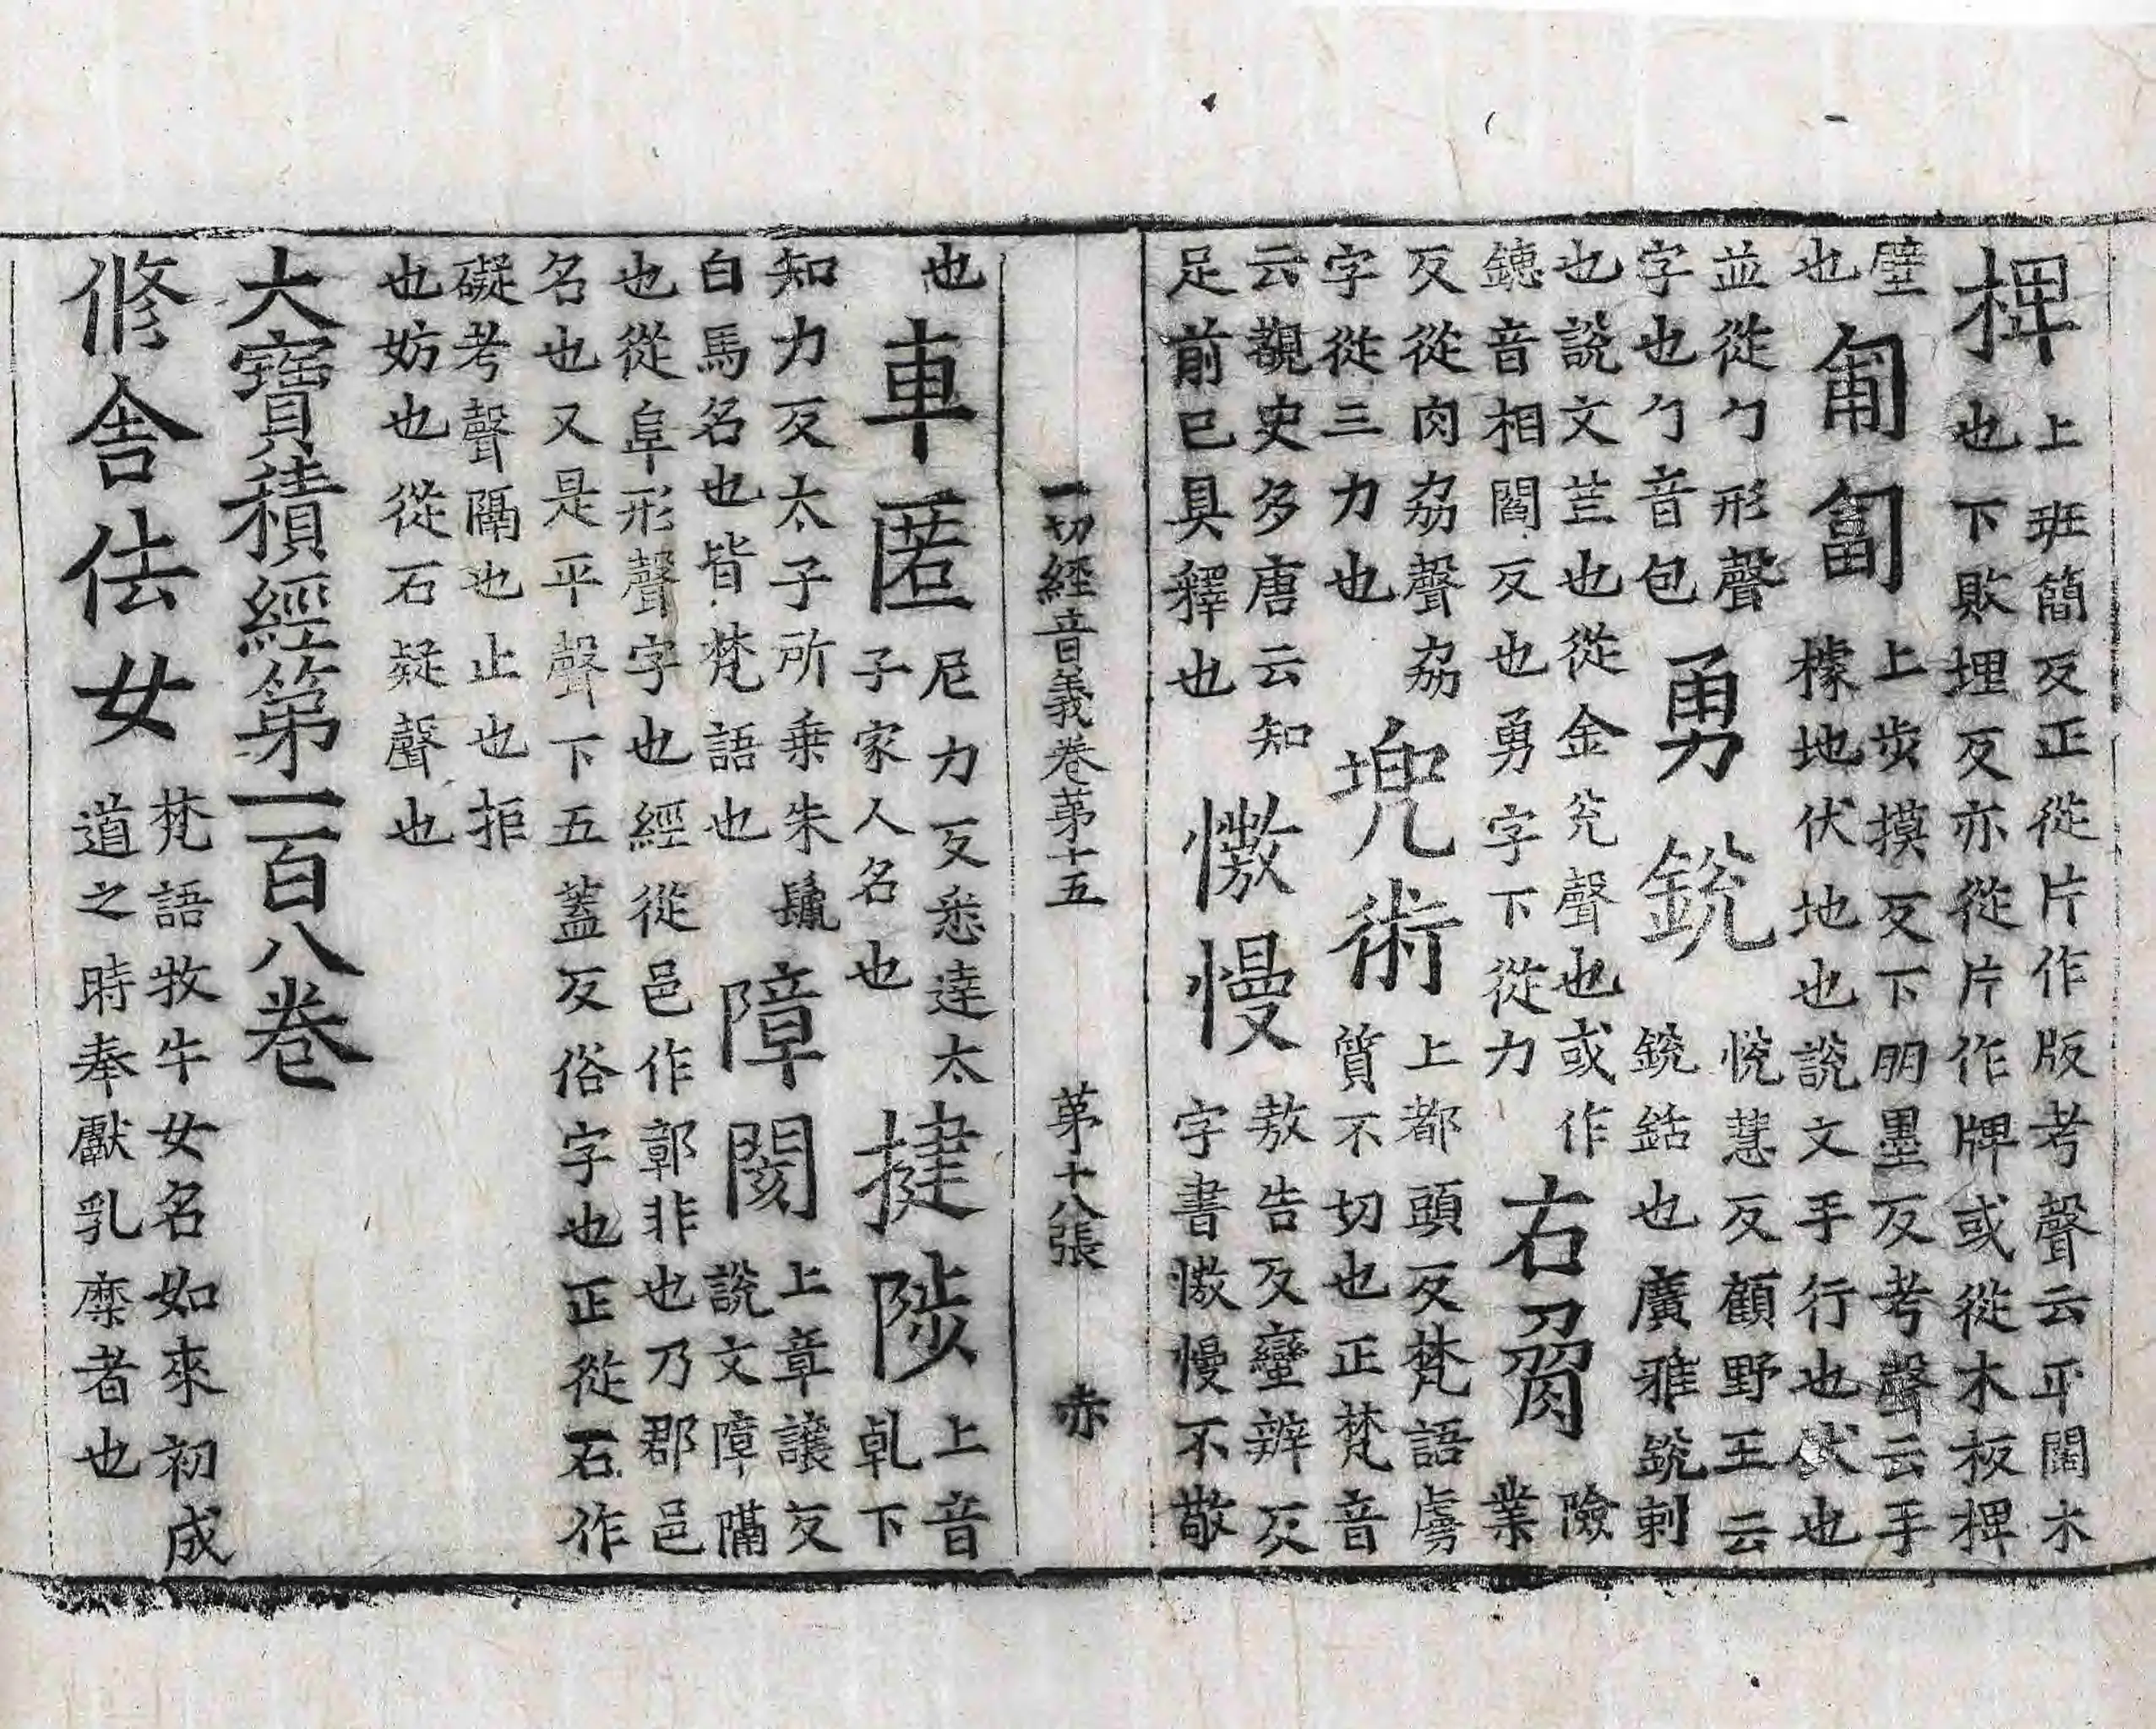 椑上班簡反正從片作版考聲云平闊木也下敗埋反亦從片作牌或從木板椑
壁也匍匐上步摸反下朋墨反考聲云手據地伏地也說文手行也伏也
並從勹形聲字也勹音包勇銳悅慧反顧野王云銳銛也廣雅銳刺
也說文芒也從金兊聲也或作鏸音相閻反也勇字下從力右脅險業
反從肉劦聲劦字從三力也兜術上都頭反梵語虜質不切也正梵音
云覩史多唐云知足前已具釋也慠慢敖告反蠻辦反字書慠慢不敬
一切經音義卷苐十五 苐十八張 赤
也車匿尼力反悉達太子家人名也揵陟上音乹下
知力反太子所乗朱鬛白馬名也皆梵語也障閡上章讓反說文障隔
也從阜形聲字也經從邑作鄣非也乃郡邑名也又是平聲下五蓋反俗字也正從石作
礙考聲隔也止也拒也妨也從石疑聲也
大寶積經第一百八卷
修舍佉女梵語牧牛女名如來初成道之時奉獻乳糜者也